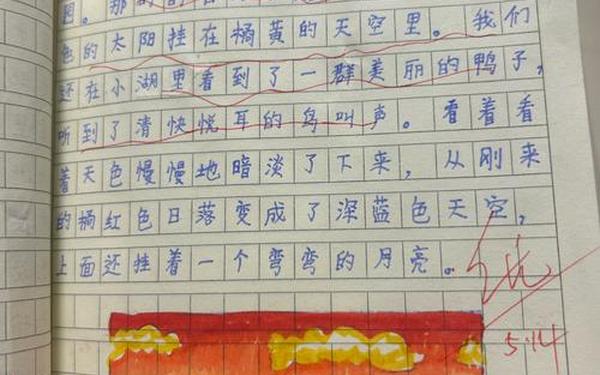 色的太阳挂在橘黄的天空里。我们
还在小湖里看到了一群美丽的鸭子，
听到了清快悦耳的鸟叫声。看着看
着天色慢慢地暗淡了下来，从刚来
的橘红色日落变成了深蓝色天空，
上面还挂着一个弯弯的月亮。
优
5.14